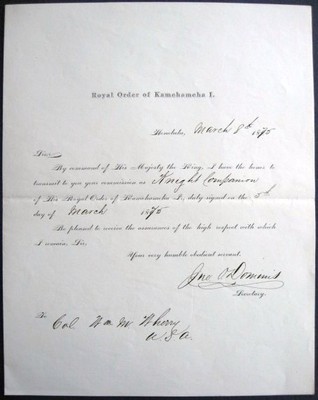 Royal Order of Kamehameha I.
Honolulu, March 8th 1875
Sir:
By command of His Majesty the King, I have the honor to
transmit to you your commission as Knight Companion
of His Royal Order of Kamehameha I., duly signed on the 5th
day of March 1875
Be pleased to receive the assurance of the high respect with which
I remain, Sir,
Your very humble obedient servant.
Jno O Dominis
Secretary.
To
Col Wm M Wherry
U.S.A.